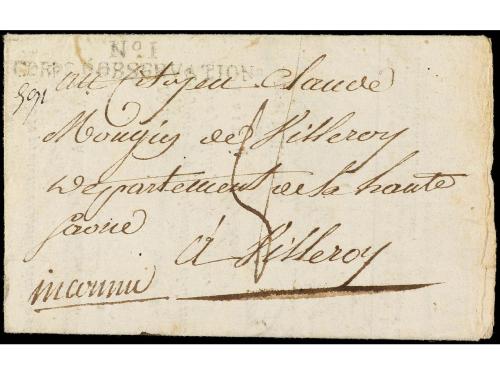 No. 1
CORPS D'OBSERVATION
au Citoyen Claude
Mougin de Villeroy
Departement de la haute
Saone
à Villeroy
inconnu